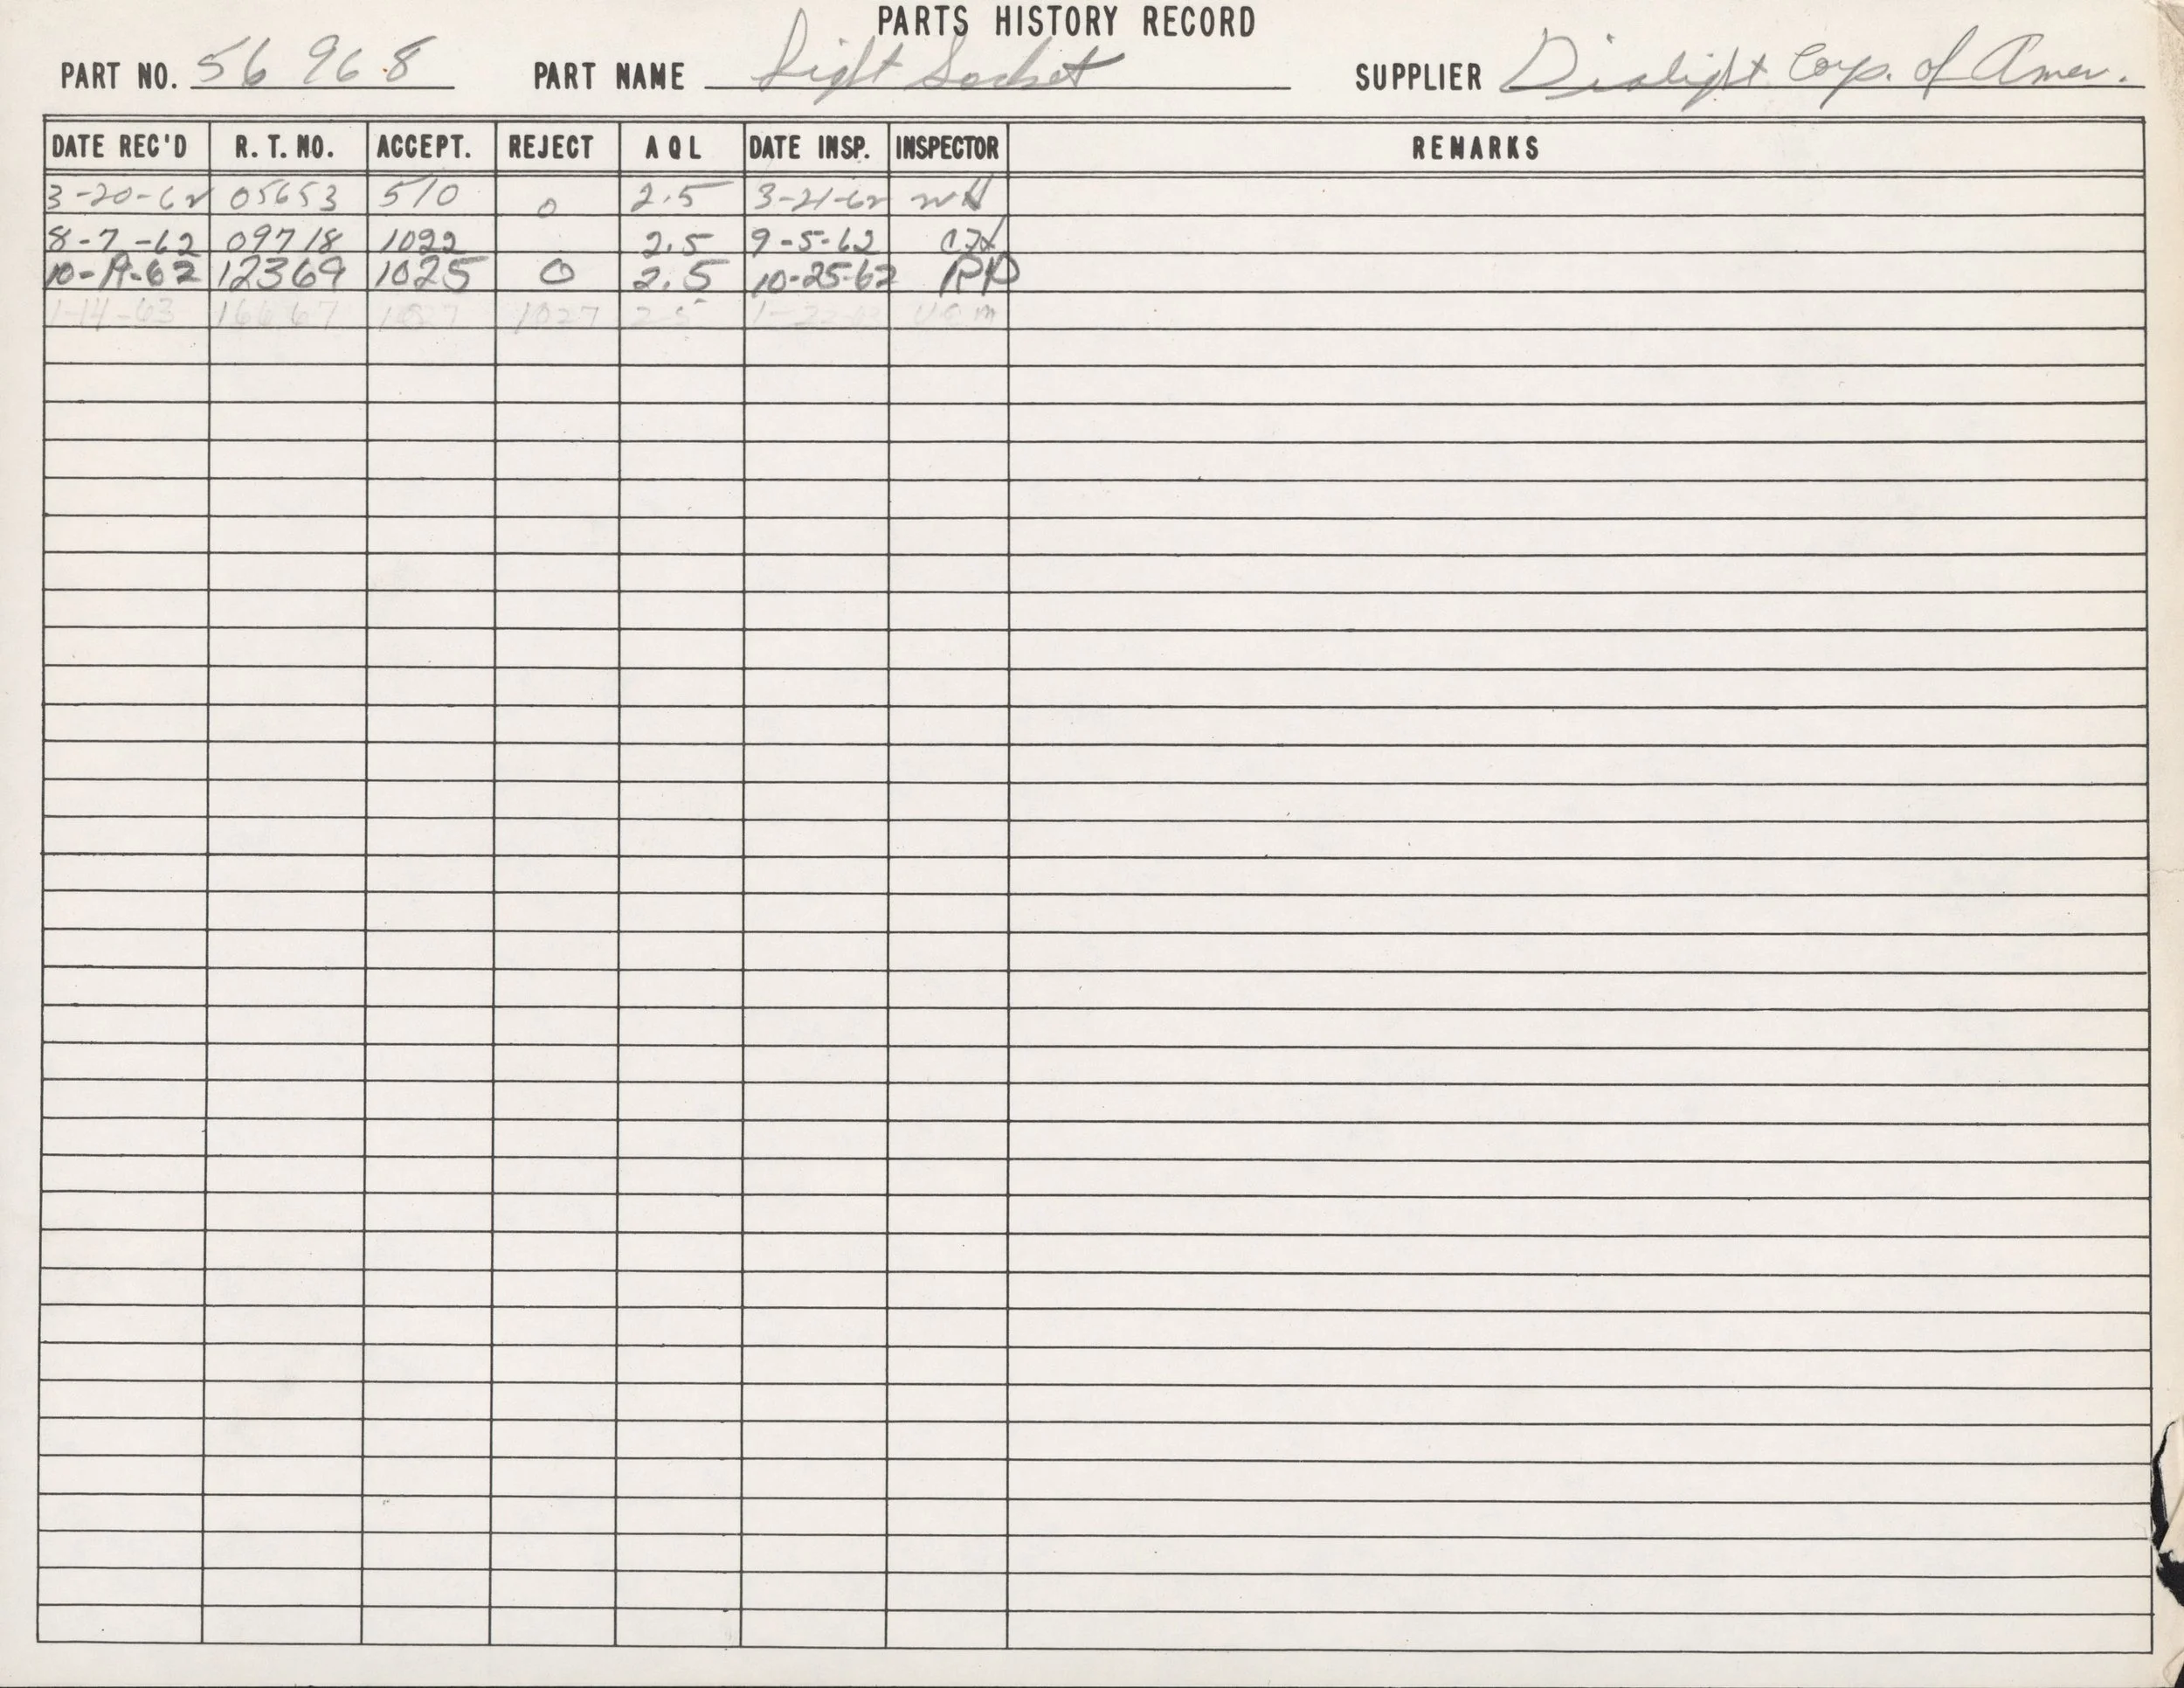 PARTS HISTORY RECORD
PART NO. 56968 PART NAME Light Socket SUPPLIER Dialight Corp. of Amer.
DATE REC'D R. T. NO. ACCEPT. REJECT AQL DATE INSP. INSPECTOR REMARKS
3-20-62 05653 510 0 2.5 3-21-62 WH
8-7-62 09718 1022 2.5 9-5-62
10-19-62 12369 1025 0 2.5 10-25-62 RP
1-14-63 16667 1027 1027 2.5